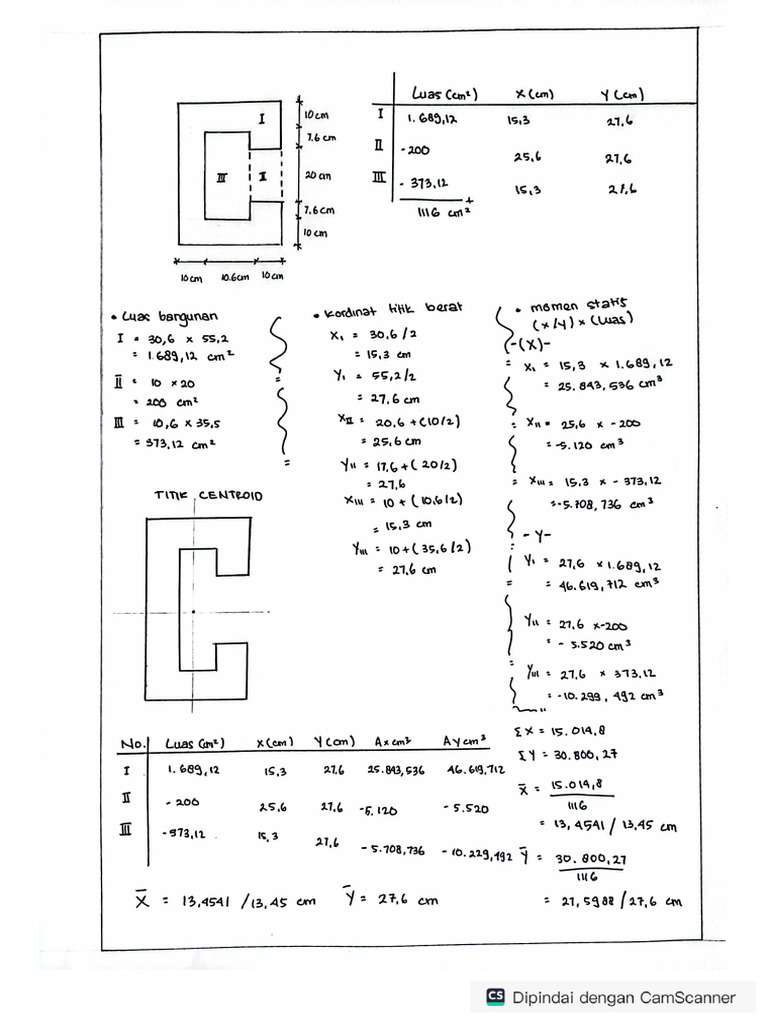 Luas (cm²) X (cm) Y (cm)
I 1.689,12 15,3 27,6
II -200 25,6 27,6
III - 373,12 15,3 27,6
+
1116 cm²
I
III
II
10 cm
7.6 cm
20 cm
7.6 cm
10 cm
10 cm 10.6cm 10 cm
• Luas bangunan
I = 30,6 x 55,2
= 1.689,12 cm²
II = 10 x 20
= 200 cm²
III = 10,6 x 35,5
= 373,12 cm²
• Kordinat titik berat
X₁ = 30,6 / 2
= 15,3 cm
Y₁ = 55,2/2
= 27,6 cm
XII = 20,6 + (10/2)
= 25,6 cm
YII = 17,6 + (20/2)
= 27,6
XIII = 10 + (10,6/2)
= 15,3 cm
YIII = 10 + (35,6/2)
= 27,6 cm
• momen statis
(x/y) x (Luas)
-(X)-
= X₁ = 15,3 x 1.689,12
= 25.843,536 cm³
= XII = 25,6 x -200
= -5.120 cm³
= XIII = 15,3 x - 373,12
= -5.708,736 cm³
- Y -
Y₁ = 27,6 x 1.689,12
= 46.619,712 cm³
YII = 27,6 x -200
= - 5.520 cm³
YIII = 27,6 x 373,12
= -10.299,492 cm³
TITIK CENTROID
ΣX = 15.014,8
ΣY = 30.800,27
X̄ = 15.014,8
1116
= 13,4541 / 13,45 cm
Ȳ = 30.800,27
1116
= 27,5988 / 27,6 cm
No. Luas (cm²) X (cm) Y (cm) Ax cm³ Ay cm³
I 1.689,12 15,3 27,6 25.843,536 46.619,712
II - 200 25,6 27,6 -5.120 - 5.520
III -373,12 15,3 27,6 - 5.708,736 - 10.229,492
X̄ = 13,4541 / 13,45 cm Ȳ = 27,6 cm
CS Dipindai dengan CamScanner